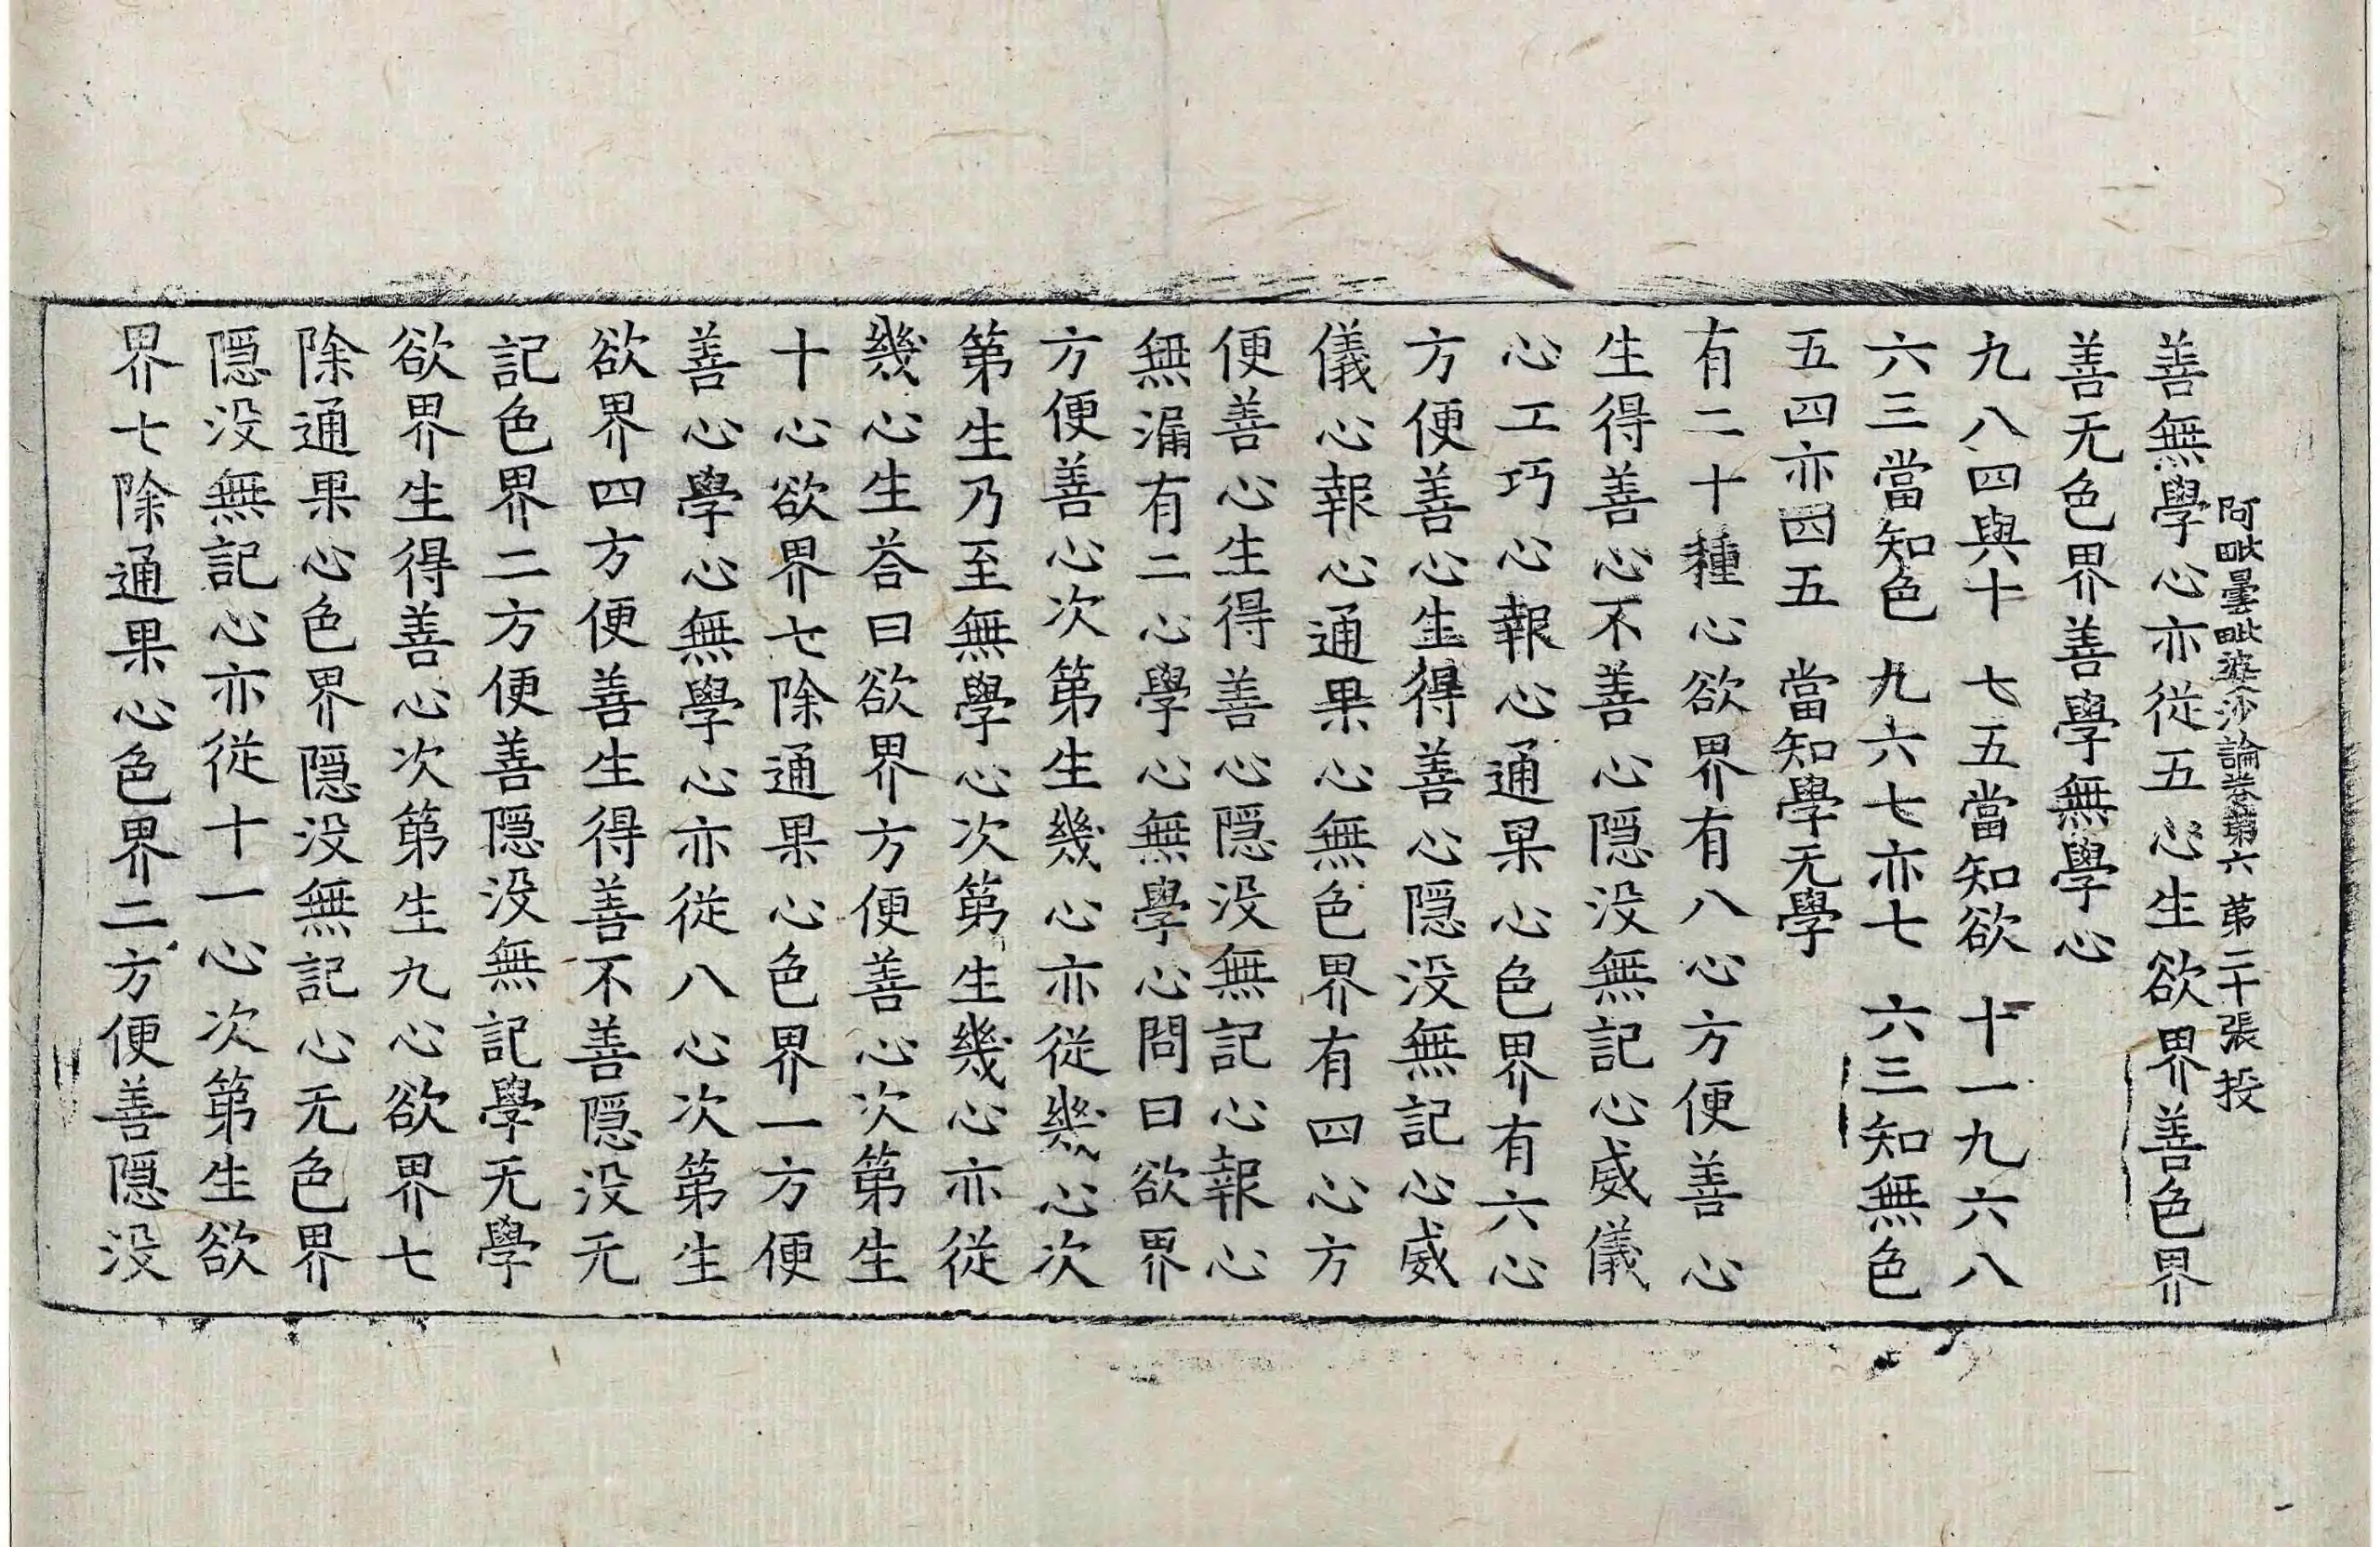 阿毗曇毗婆沙論卷第六 第二十張 投
善無學心亦従五心生欲界善色界
善无色界善學無學心
九八四與十 七五當知欲 十一九六八
六三當知色 九六七亦七 六三知無色
五四亦四五 當知學无學
有二十種心欲界有八心方便善心
生得善心不善心隠没無記心威儀
心工巧心報心通果心色界有六心
方便善心生得善心隠没無記心威
儀心報心通果心無色界有四心方
便善心生得善心隠没無記心報心
無漏有二心學心無學心問曰欲界
方便善心次第生幾心亦従幾心次
第生乃至無學心次第生幾心亦従
幾心生荅曰欲界方便善心次第生
十心欲界七除通果心色界一方便
善心學心無學心亦従八心次第生
欲界四方便善生得善不善隠没无
記色界二方便善隠没無記學无學
欲界生得善心次第生九心欲界七
除通果心色界隠没無記心无色界
隠没無記心亦従十一心次第生欲
界七除通果心色界二方便善隠没